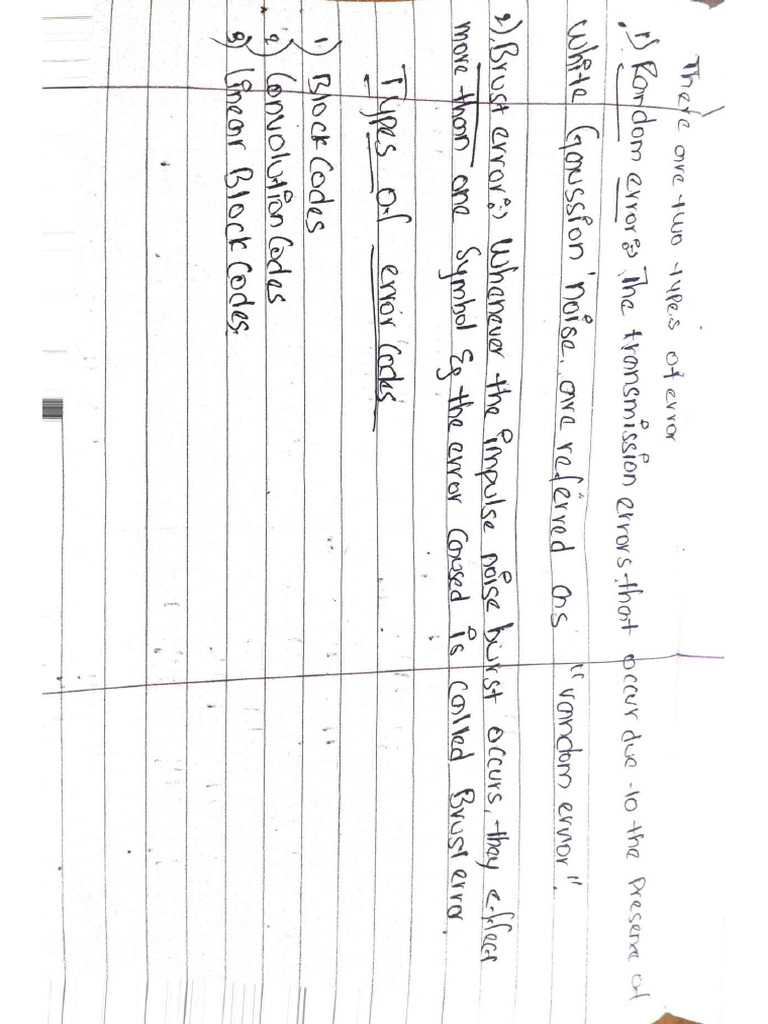 There are two types of error
1) Random error:> The transmission errors that occur due to the presence of
white Gaussion noise, are referred as "random error".
2) Brust error:> Whenever the impulse noise burst occurs, they effect
more than one Symbol Eg the error caused is called Brust error.
Types of error Codes
1) Block Codes
2) Convolution Codes
3) Linear Block Codes.